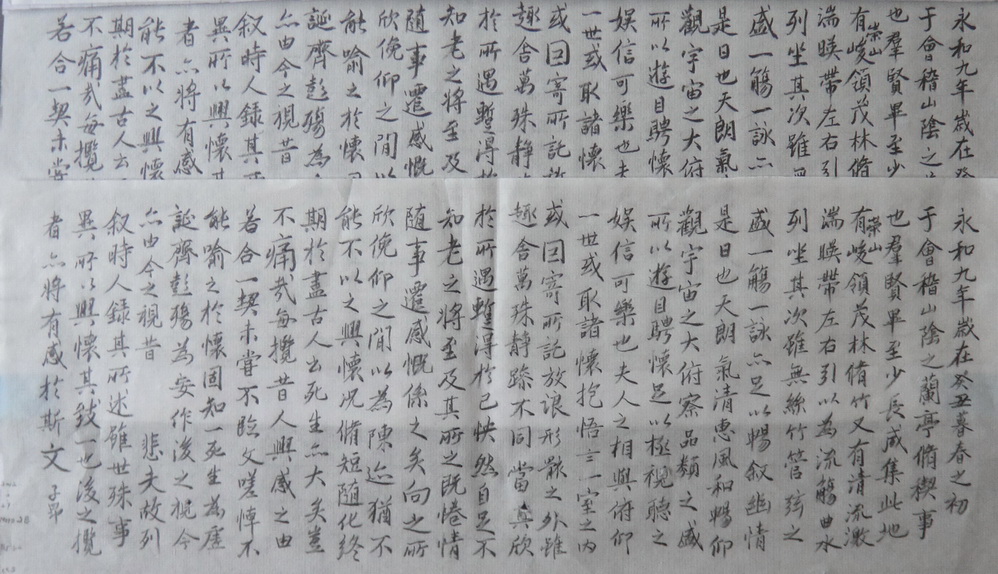 永和九年歲在
于會稽山陰之
也羣賢畢至少
有崇山峻領茂林脩
湍暎帶左右引
列坐其次雖
盛一觴一詠亦
是日也天朗氣
觀宇宙之大俯
所以遊目騁懷
娱信可樂也夫
一世或取諸懷
或因寄所託
趣舍萬殊静
於所遇蹔得
知老之將至及
随事遷感慨
欣俛仰之間以
能喻之於懷
誕齊彭殤為
亦由今之視昔
叙時人録其
異所以興懷
者亦將有感
能不以之興懷
期於盡古人云
不痛哉每攬
若合一契未嘗
永和九年歲在癸丑暮春之初
于會稽山陰之蘭亭脩稧事
也羣賢畢至少長咸集此地
有崇山峻領茂林脩竹又有清流激
湍暎帶左右引以為流觴曲水
列坐其次雖無絲竹管弦之
盛一觴一詠亦足以暢叙幽情
是日也天朗氣清惠風和暢仰
觀宇宙之大俯察品類之盛
所以遊目騁懷足以極視聽之
娱信可樂也夫人之相與俯仰
一世或取諸懷抱悟言一室之内
或因寄所託放浪形骸之外雖
趣舍萬殊静躁不同當其欣
於所遇蹔得於己快然自足不
知老之將至及其所之既惓情
随事遷感慨係之矣向之所
欣俛仰之間以為陳迹猶不
能不以之興懷況脩短随化終
期於盡古人云死生亦大矣豈
不痛哉每攬昔人興感之由
若合一契未嘗不臨文嗟悼不
能喻之於懷固知一死生為虛
誕齊彭殤為妄作後之視今
亦由今之視昔 悲夫故列
叙時人録其所述雖世殊事
異所以興懷其致一也後之攬
者亦將有感於斯文 子昂